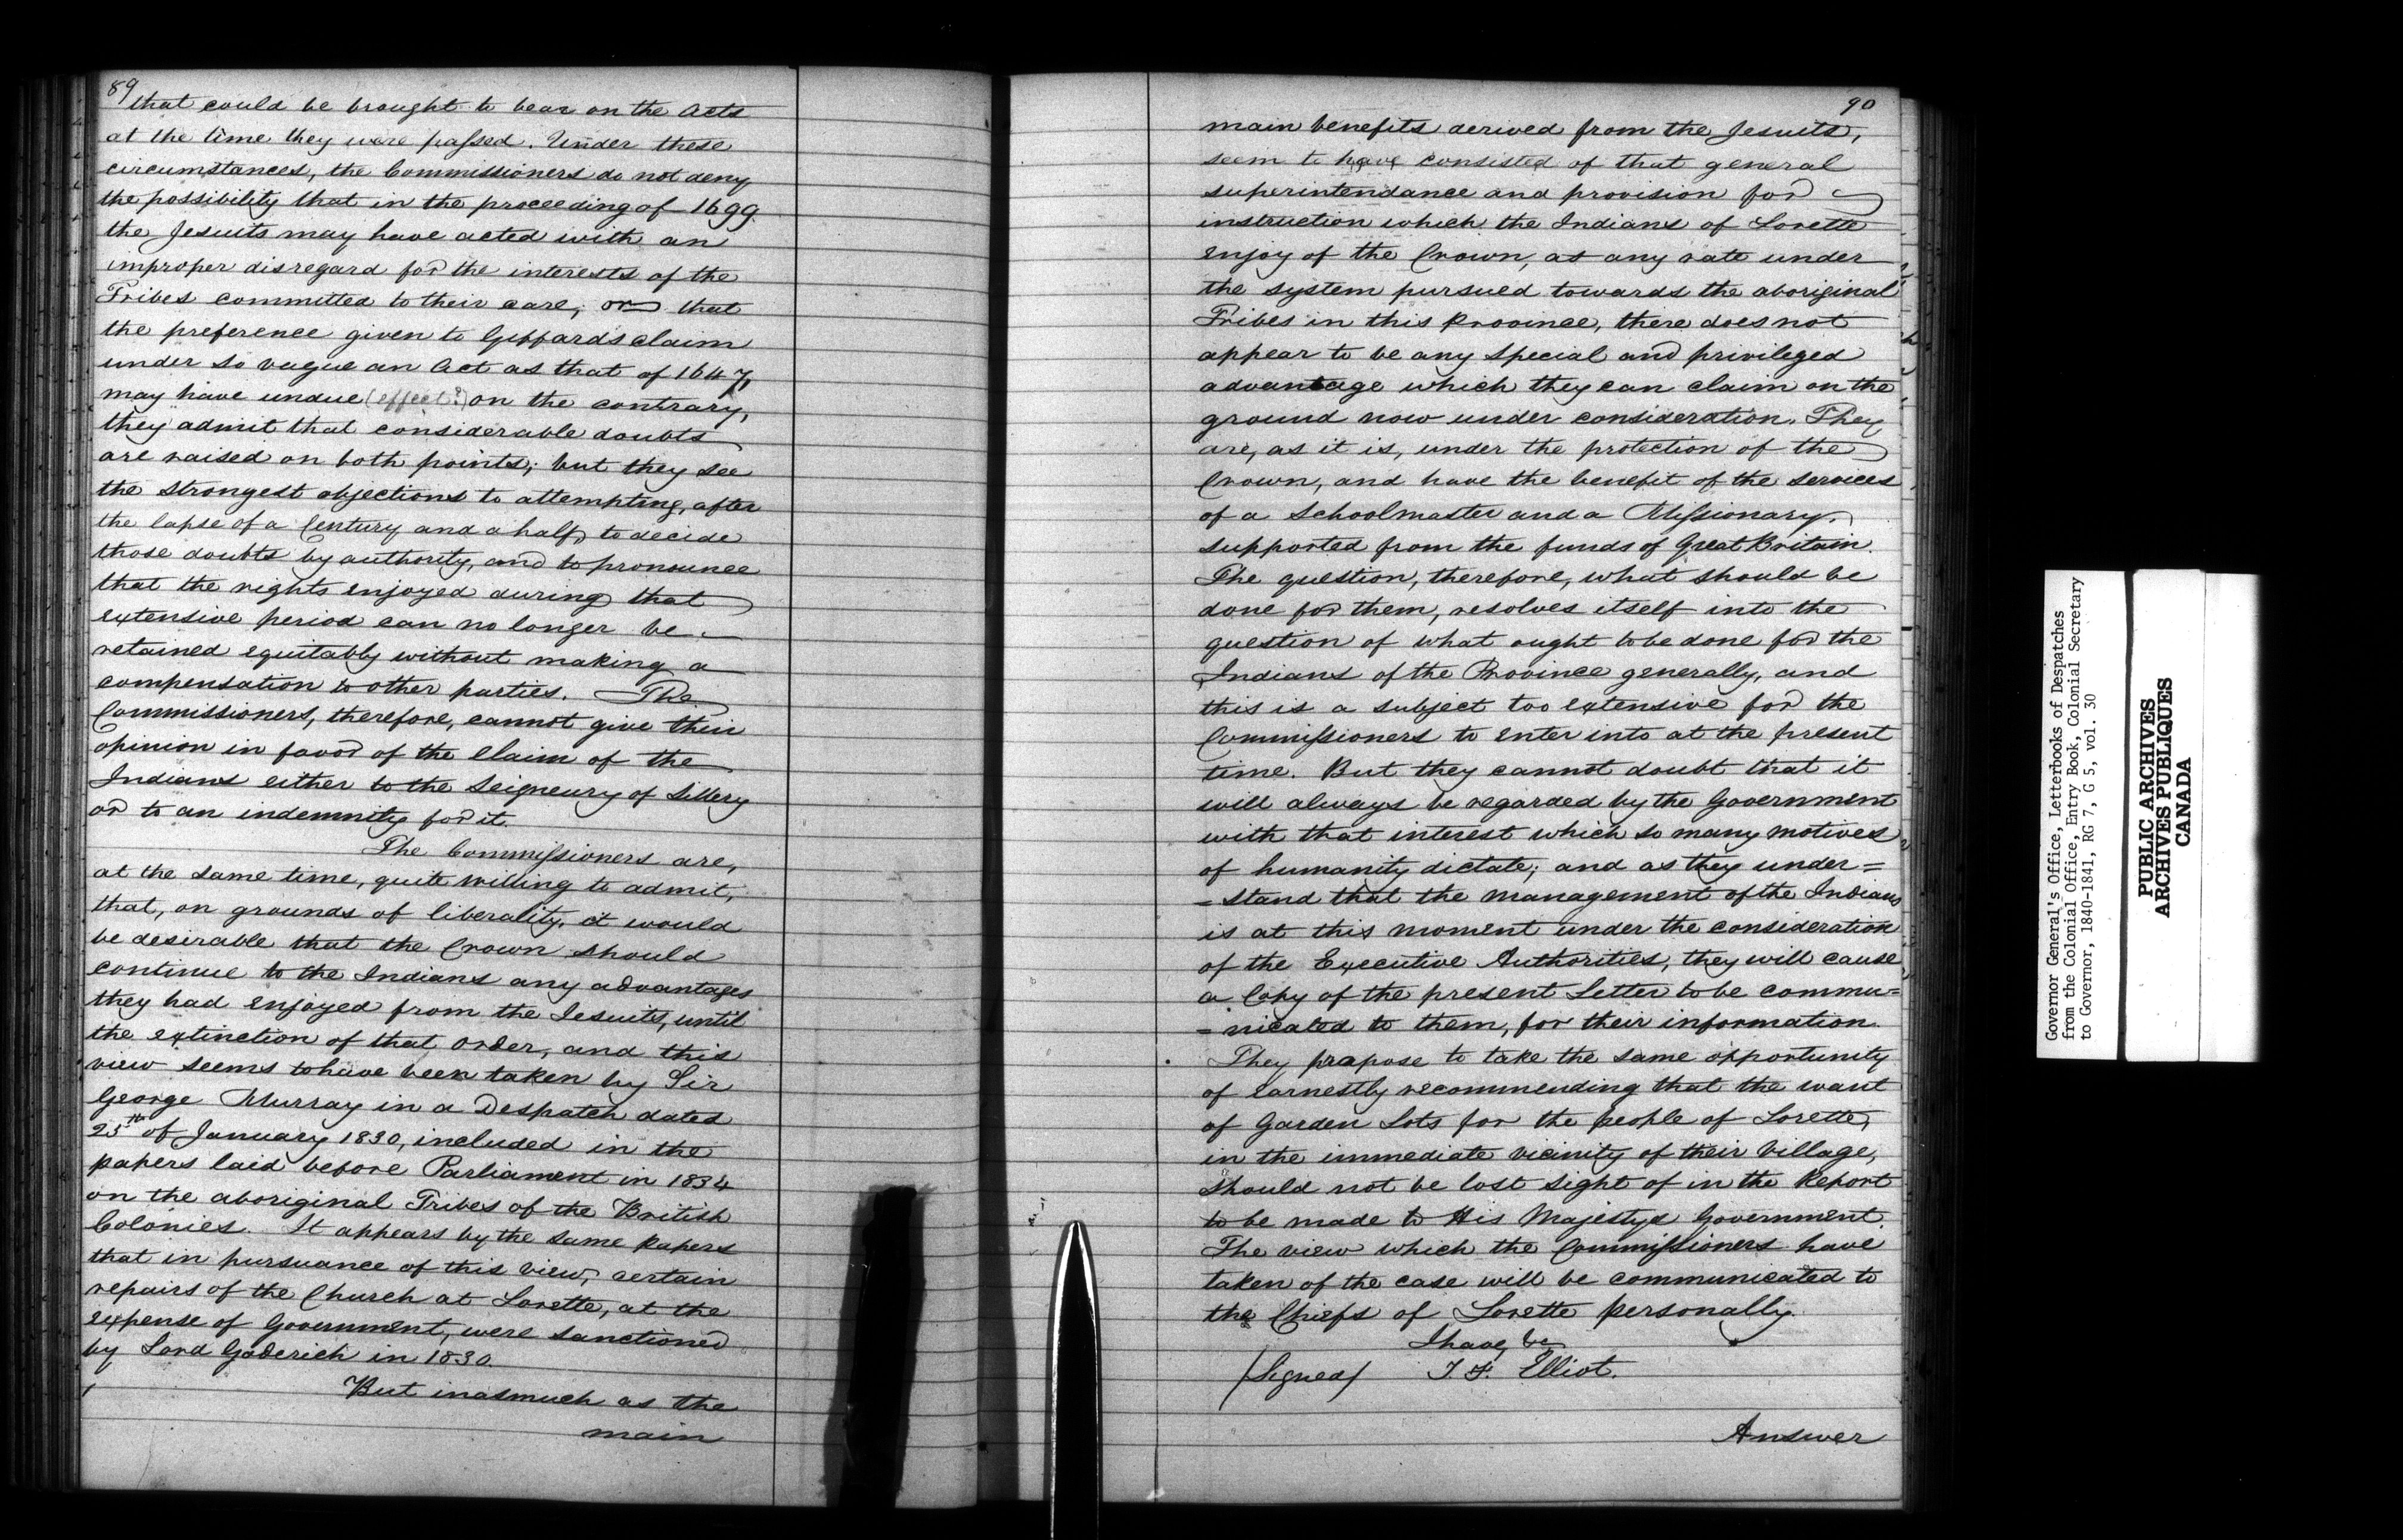 89
that could be brought to bear on the Acts
at the time they were passed. Under these
circumstances, the Commissioners do not deny
the possibility that in the proceeding of 1699.
the Jesuits may have acted with an
improper disregard for the interests of the
Tribes committed to their care, or that
the preference given to Giffard's claim
under so vague an Act as that of 1647,
may have undue (effect?) on the contrary,
they admit that considerable doubts
are raised on both points; but they see
the strongest objections to attempting, after
the lapse of a Century and a half, to decide
those doubts by authority, and to pronounce
that the rights enjoyed during that
extensive period can no longer be
retained equitably without making a
compensation to other parties. The
Commissioners, therefore, cannot give their
opinion in favor of the Claim of the
Indians either to the Seigneury of Sillery
or to an indemnity for it.
The Commissioners are,
at the same time, quite willing to admit,
that, on grounds of liberality, it would
be desirable that the Crown should
continue to the Indians any advantages
they had enjoyed from the Jesuits, until
the extinction of that order, and this
view seems to have been taken by Sir
George Murray in a Despatch dated
25th of January 1830, included in the
papers laid before Parliament in 1834
on the aboriginal Tribes of the British
Colonies. It appears by the same papers
that in pursuance of this view, certain
repairs of the Church at Lorette, at the
expense of Government, were sanctioned
by Lord Goderich in 1830.
But inasmuch as the
main
90
main benefits derived from the Jesuits,
seem to have consisted of that general
superintendance and provision for
instruction which the Indians of Lorette
enjoy of the Crown, at any rate under
the system pursued towards the aboriginal
Tribes in this Province, there does not
appear to be any special and privileged
advantage which they can claim on the
ground now under consideration. They
are, as it is, under the protection of the
Crown, and have the benefit of the services
of a Schoolmaster and a Missionary,
supported from the funds of Great Britain.
The question, therefore, what should be
done for them, resolves itself into the
question of what ought to be done for the
Indians of the Province generally, and
this is a subject too extensive for the
Commissioners to enter into at the present
time. But they cannot doubt that it
will always be regarded by the Government
with that interest which so many motives
of humanity dictate; and as they under=
=stand that the management of the Indians
is at this moment under the consideration
of the Executive Authorities, they will cause
a Copy of the present Letter to be commu=
=nicated to them, for their information.
They propose to take the same opportunity
of earnestly recommending that the want
of Garden Lots for the people of Lorette,
in the immediate vicinity of their Village,
should not be lost sight of in the Report
to be made to His Majestys Government.
The view which the Commissioners have
taken of the case will be communicated to
the Chiefs of Lorette personally.
I have &c
(Signed) T. F. Elliot.
Answer
Governor General's Office, Letterbooks of Despatches
from the Colonial Office, Entry Book, Colonial Secretary
to Governor, 1840-1841, RG 7, G 5, vol. 30
PUBLIC ARCHIVES
ARCHIVES PUBLIQUES
CANADA